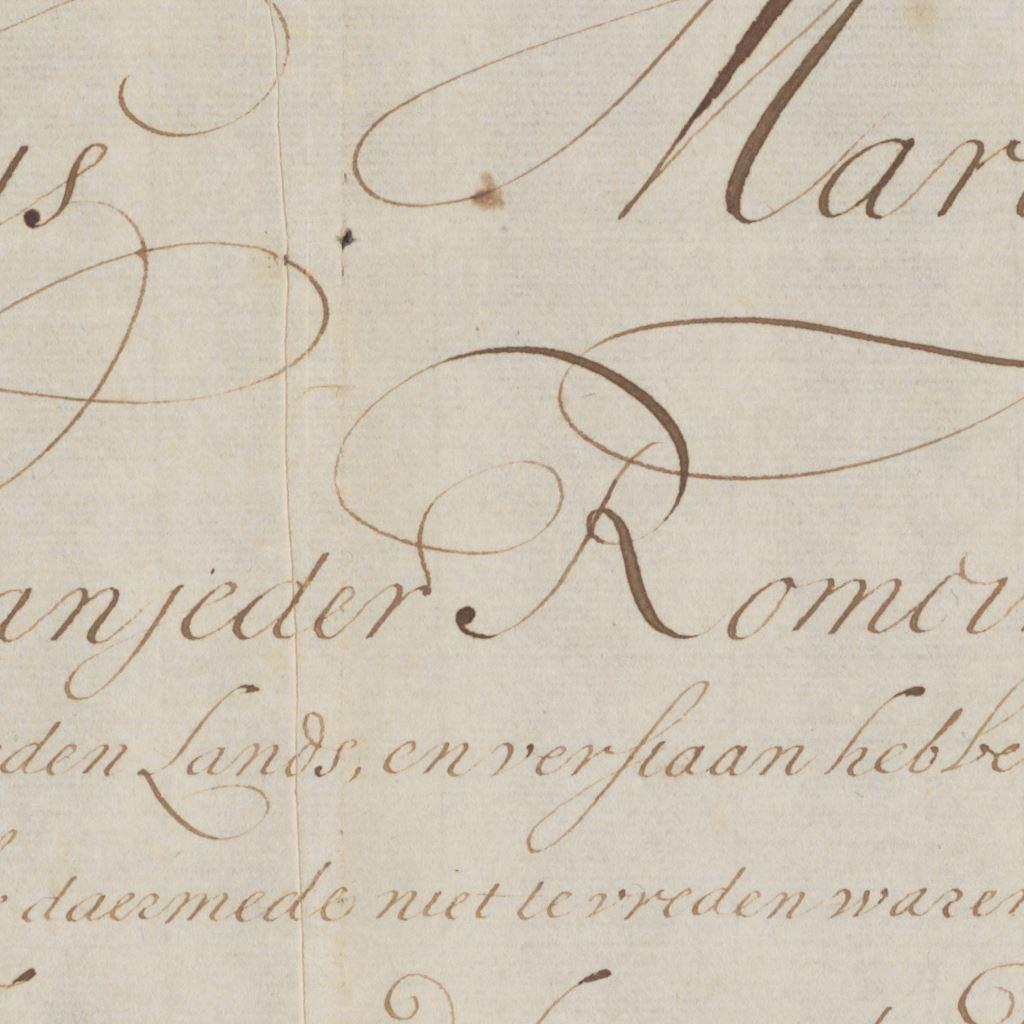 us Mar
an jeder Romei
den Lands, en verstaan hebbe
daermede niet te vreden waren